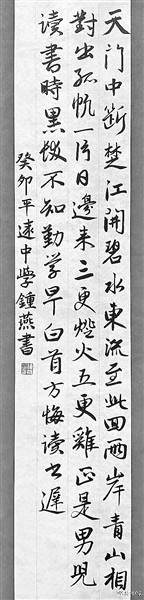 天门中断楚江開碧水東流至此回两岸青山相
對出孤帆一片日邊来三更燈火五更雞正是男児
读書時黑发不知勤学早白首方悔读书遲
癸卯平遠中學鍾燕書